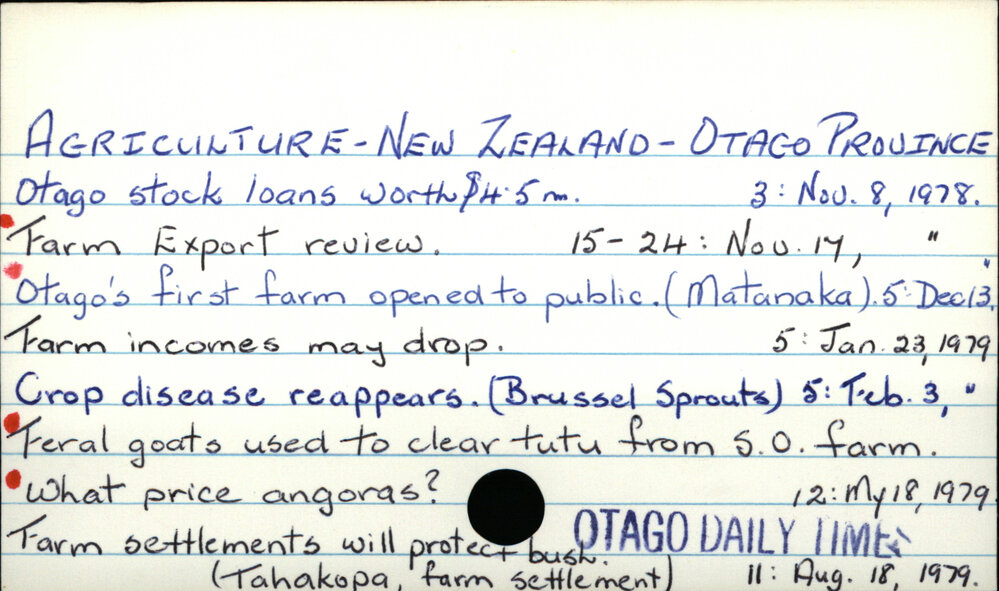 AGRICULTURE - NEW ZEALAND - OTAGO PROVINCE
Otago stock loans worth $4.5 m. 3: Nov. 8, 1978.
Farm Export review. 15-24: Nov. 17, "
Otago's first farm opened to public. (Matanaka). 5: Dec 13, "
Farm incomes may drop. 5: Jan. 23, 1979
Crop disease reappears. (Brussel Sprouts) 5: Feb. 3, "
Feral goats used to clear tutu from S.O. farm.
What price angoras? 12: My 18, 1979
Farm settlements will protect bush. OTAGO DAILY TIMES
(Tahakopa, farm settlement) 11: Aug. 18, 1979.